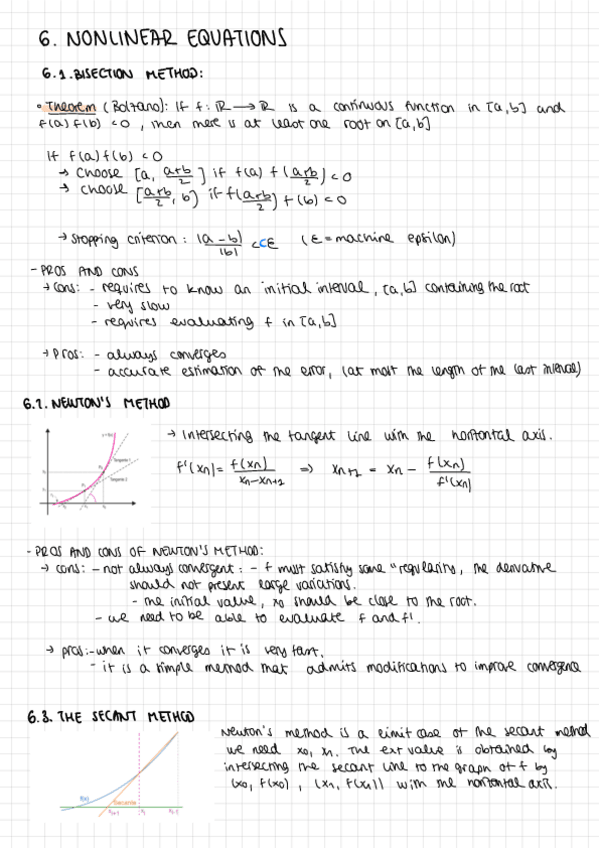 6. NONLINEAR EQUATIONS
6.1. BISECTION METHOD:
• Theorem (Bolzano): If f: ℝ → ℝ is a continuous function in [a,b] and
f(a) f(b) <0, then there is at least one root on [a,b]
If f(a) f(b) <0
→ Choose [a, (a+b)/2] if f(a) f((a+b)/2) <0
→ choose [(a+b)/2, b] if f((a+b)/2) f(b) <0
→ Stopping criterion: |a-b|/|b| <CE (E = machine epsilon)
- PROS AND CONS
→ Cons: - requires to know an initial interval, [a,b] containing the root
- very slow
- requires evaluating f in [a,b]
→ Pros: - always converges
- accurate estimation of the error, (at most the length of the last interval)
6.2. NEWTON'S METHOD
→ Intersecting the tangent line with the horizontal axis.
f'(xn) = f(xn)/(xn-xn+1) ⇒ xn+1 = xn - f(xn)/f'(xn)
Tangente 1
Tangente 2
- PROS AND CONS OF NEWTON'S METHOD:
→ cons: - not always convergent: - f must satisfy some "regularity, the derivative
should not present large variations.
- the initial value, x0 should be close to the root.
- we need to be able to evaluate f and f'.
→ pros: - when it converges it is very fast.
- it is a simple method that admits modifications to improve convergence
6.3. THE SECANT METHOD
Newton's method is a limit case of the secant method
we need x0, x1. The ext value is obtained by
intersecting the secant line to the graph of f by
(x0, f(x0)), (x1, f(x1)) with the horizontal axis.
f(x)
Secante
xi+1
xi
xi-1